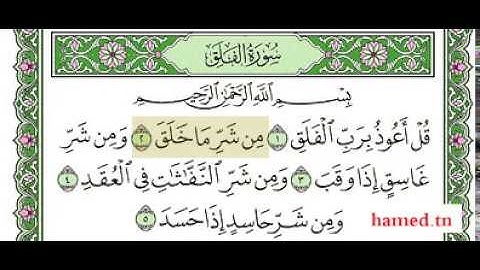 سُورَةُ الفَلَقِ
بِسْمِ ٱللَّهِ ٱلرَّحْمَٰنِ ٱلرَّحِيمِ
قُلْ أَعُوذُ بِرَبِّ ٱلْفَلَقِ ١ مِن شَرِّ مَا خَلَقَ ٢ وَمِن شَرِّ
غَاسِقٍ إِذَا وَقَبَ ٣ وَمِن شَرِّ ٱلنَّفَّٰثَٰتِ فِي ٱلْعُقَدِ ٤
وَمِن شَرِّ حَاسِدٍ إِذَا حَسَدَ ٥
hamed.tn